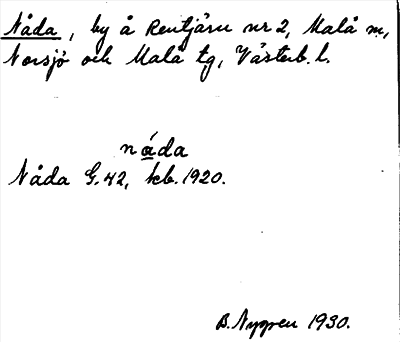 Nåda, by å Rentjärn nr 2, Malå sn,
Norsjö och Malå tg, Västerb. l.
nåda
Nåda G.42, kb. 1920.
B. Nygren 1930.